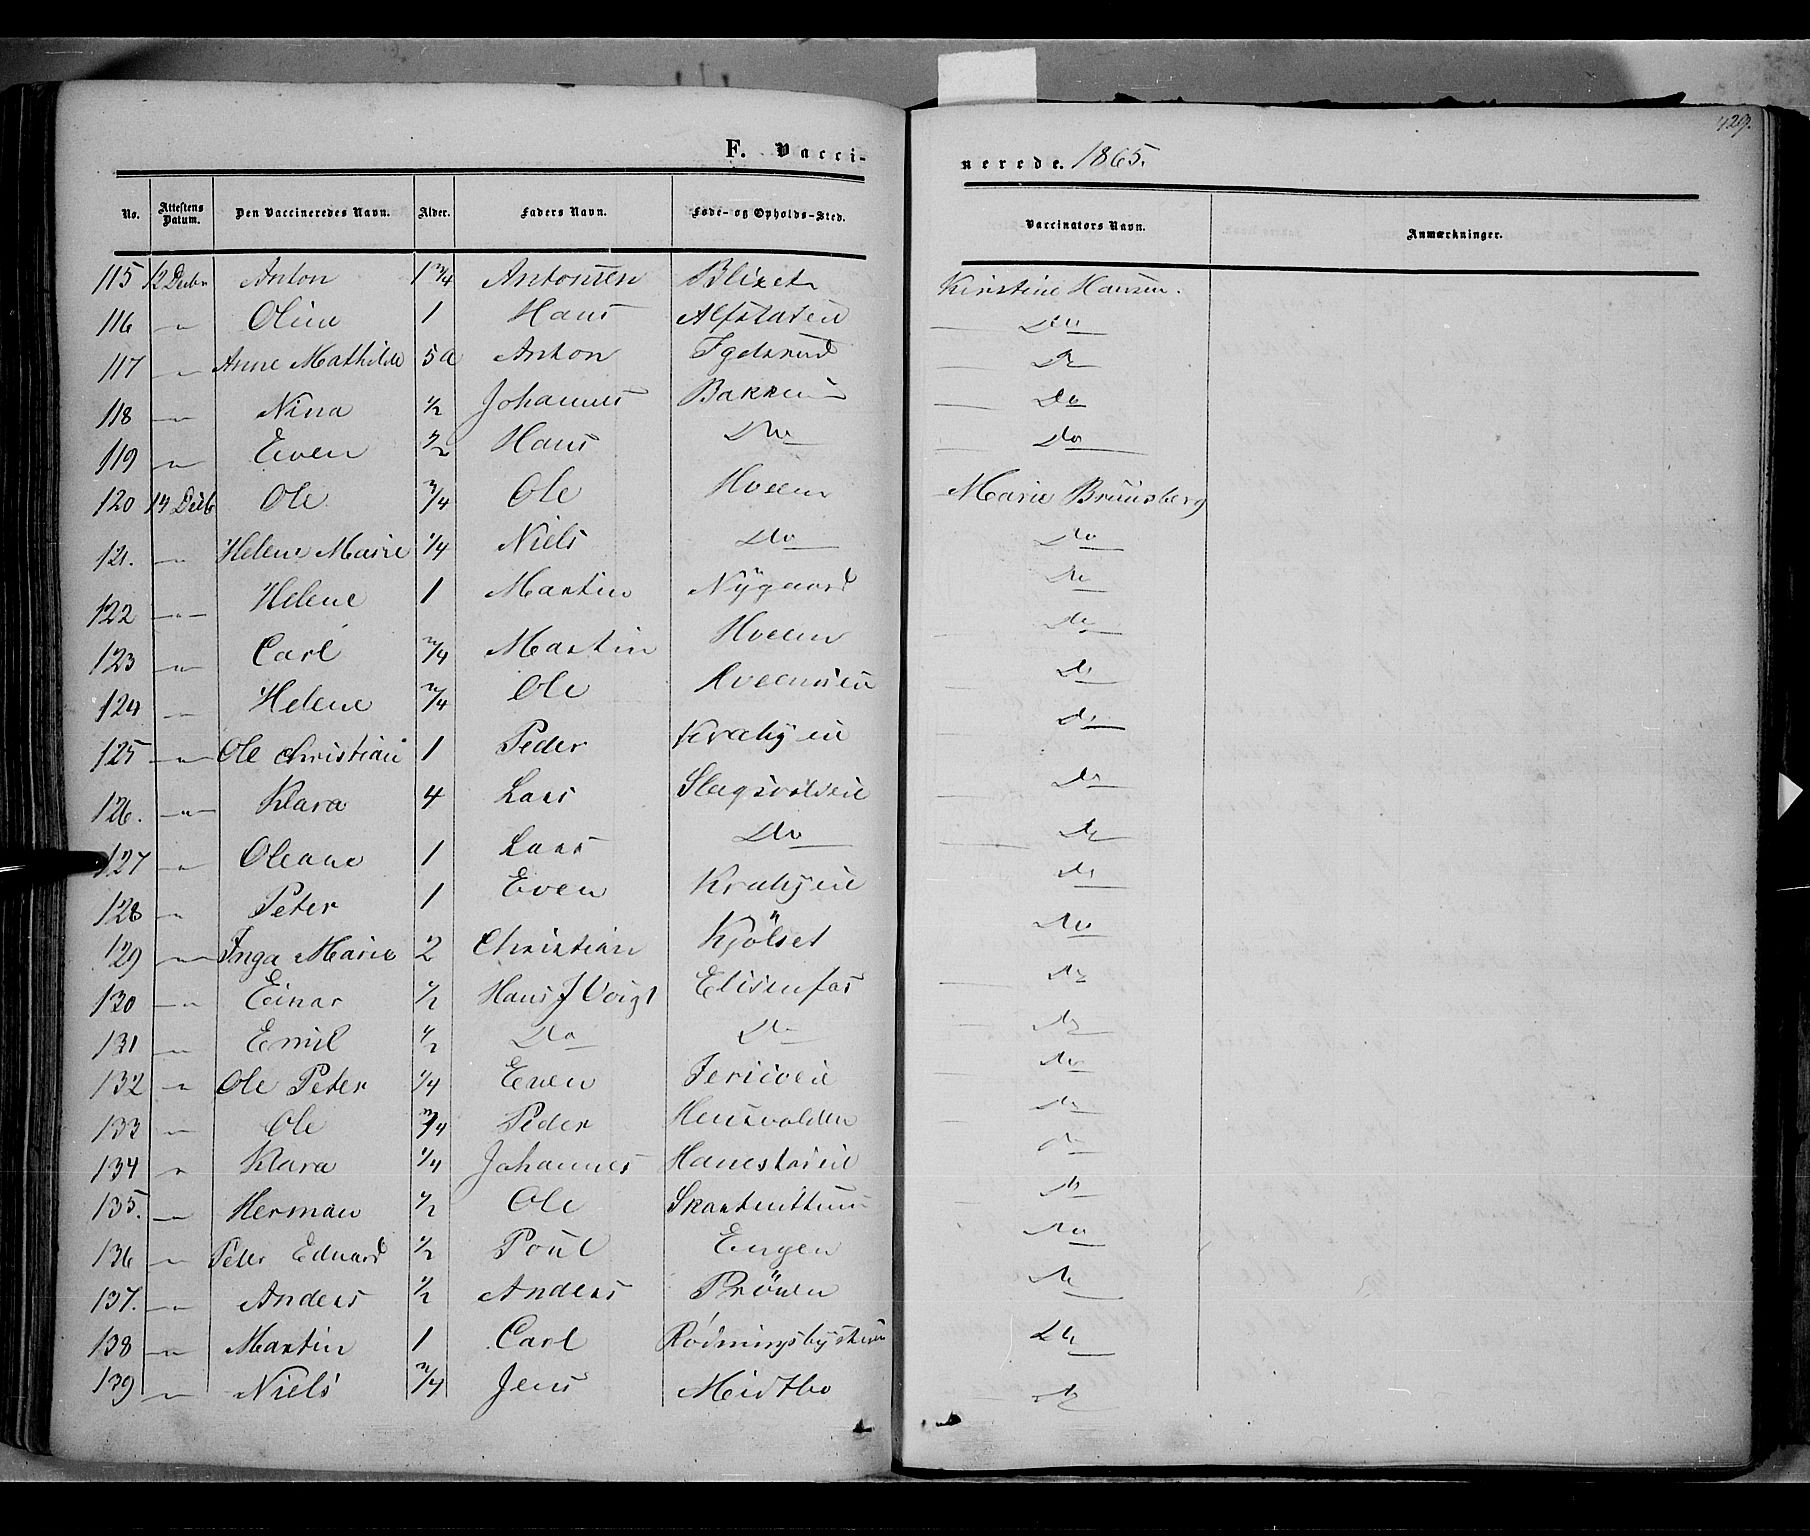 429.
F. Vacci-
nerede. 1865.
No. Attestens Datum. Den Vaccineredes Navn. Alder. Faders Navn. Føde- og Opholds-Sted. Vaccinators Navn. Anmærkninger.
115 12 Decbr Anton 1 3/4 Antonsen Blixet Kirstine Hansen.
116 " Oline 1 Hans Alfstadeie Do
117 " Anne Mathilde 5 a Anton Igelsrud Do
118 " Nina 1/2 Johannes Bakken Do
119 " Even 1/2 Hans Do Do
120 14 Decb Ole 3/4 Ole Hveem Marie Bruusberg
121. " Helene Marie 1/4 Niels Do Do
122 " Helene 1 Martin Nygaard Do
123 " Carl 3/4 Martin Hveem Do
124 " Helene 3/4 Ole Hveemseie Do
125 " Ole Christian 1 Peder Krabyeie Do
126. " Klara 4 Lars Slagsvoldeie Do
127 " Oleane 1 Lars Do Do
128 " Peter 1 Even Krabyeie Do
129 " Inga Marie 2 Christian Kjölset Do
130 " Einar 1/2 Hans J Voigt Elisenfos Do
131 " Emil 1/2 Do Do Do
132 " Ole Peter 1/4 Even Do
133 " Ole 3/4 Peder Do
134 " Klara 1/4 Johannes Do
135. " Herman 1/2 Ole Do
136 " Peter Eduard 1/2 Poul Engen Do
137. " Anders 1/2 Anders Pröven Do
138 " Martin 1 Carl Do
139 " Niels 3/4 Jens Midtbo Do